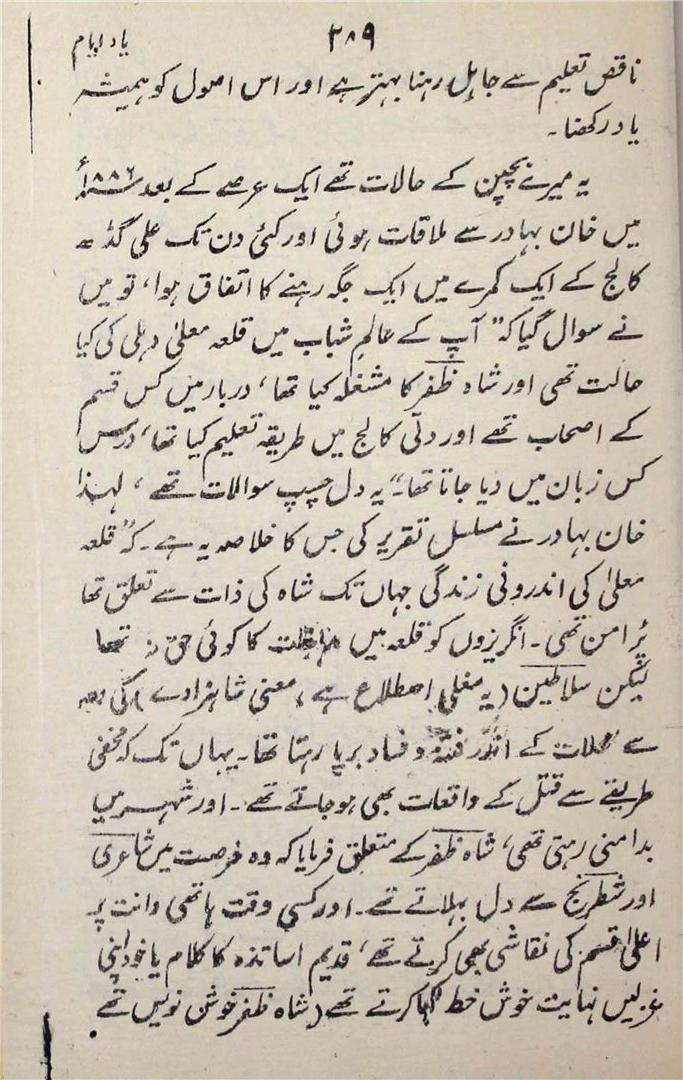 ۳۸۹
یاد ایام
ناقص تعلیم سے جاہل رہنا بہتر ہے اور اس اصول کو ہمیشہ
یاد رکھنا۔
یہ میرے بچپن کے حالات تھے ایک عرصے کے بعد ۱۸۸۶ء
میں خان بہادر سے ملاقات ہوئی اور کئی دن تک علی گڈھ
کالج کے ایک کمرے میں ایک جگہ رہنے کا اتفاق ہوا، تو میں
نے سوال کیا کہ "آپ کے عالم شباب میں قلعہ معلیٰ دہلی کی کیا
حالت تھی اور شاہ ظفر کا مشغلہ کیا تھا، دربار میں کس قسم
کے اصحاب تھے اور دلّی کالج میں طریقہ تعلیم کیا تھا، درس
کس زبان میں دیا جاتا تھا۔" یہ دل چسپ سوالات تھے، لہذا
خان بہادر نے مسلسل تقریر کی جس کا خلاصہ یہ ہے۔ کہ "قلعہ
معلیٰ کی اندرونی زندگی جہاں تک شاہ کی ذات سے تعلق تھا
پُر امن تھی۔ انگریزوں کو قلعہ میں مداخلت کا کوئی حق نہ تھا
لیکن سلاطین (یہ مغلی اصطلاح ہے، معنی شاہزادے) کی وجہ
سے محلات کے اندر فتنہ و فساد برپا رہتا تھا۔ یہاں تک کہ مخفی
طریقے سے قتل کے واقعات بھی ہو جاتے تھے۔ اور شہر میں
بدامنی رہتی تھی، شاہ ظفر کے متعلق فرمایا کہ وہ فرصت میں شاعری
اور شطرنج سے دل بہلاتے تھے۔ اور کسی وقت ہاتھی دانت پر
اعلیٰ قسم کی نقاشی بھی کرتے تھے، قدیم اساتذہ کا کلام یا خود اپنی
غزلیں نہایت خوش خط لکھا کرتے تھے (شاہ ظفر خوش نویس تھے